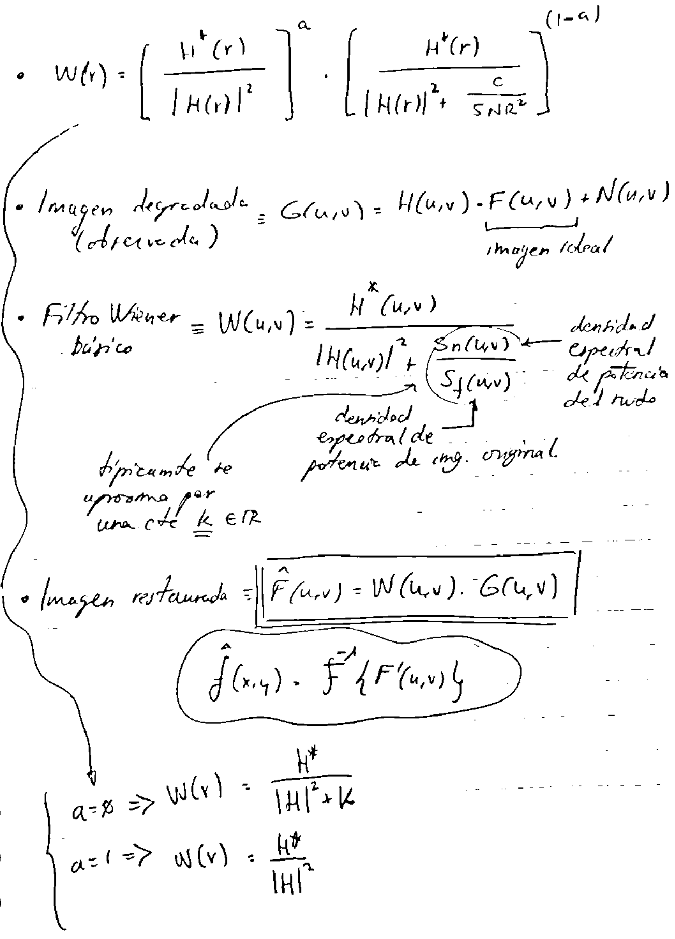 • W(r) = [ H*(r) / |H(r)|² ]^a · [ H*(r) / ( |H(r)|² + C / SNR² ) ]^(1-a)
• Imagen degradada ≡ G(u,v) = H(u,v) · F(u,v) + N(u,v)
(observada)
imagen ideal
• Filtro Wiener ≡ W(u,v) = H*(u,v) / ( |H(u,v)|² + Sn(u,v) / Sf(u,v) )
básico
densidad
espectral
de potencia
del ruido
densidad
espectral de
potencia de img. original.
típicamte se
aproxima por
una cte k ∈ ℝ
• Imagen restaurada ≡ F̂(u,v) = W(u,v) · G(u,v)
f̂(x,y) = F⁻¹{F'(u,v)}
a=0 => W(r) = H* / ( |H|² + K )
a=1 => W(r) = H* / |H|²